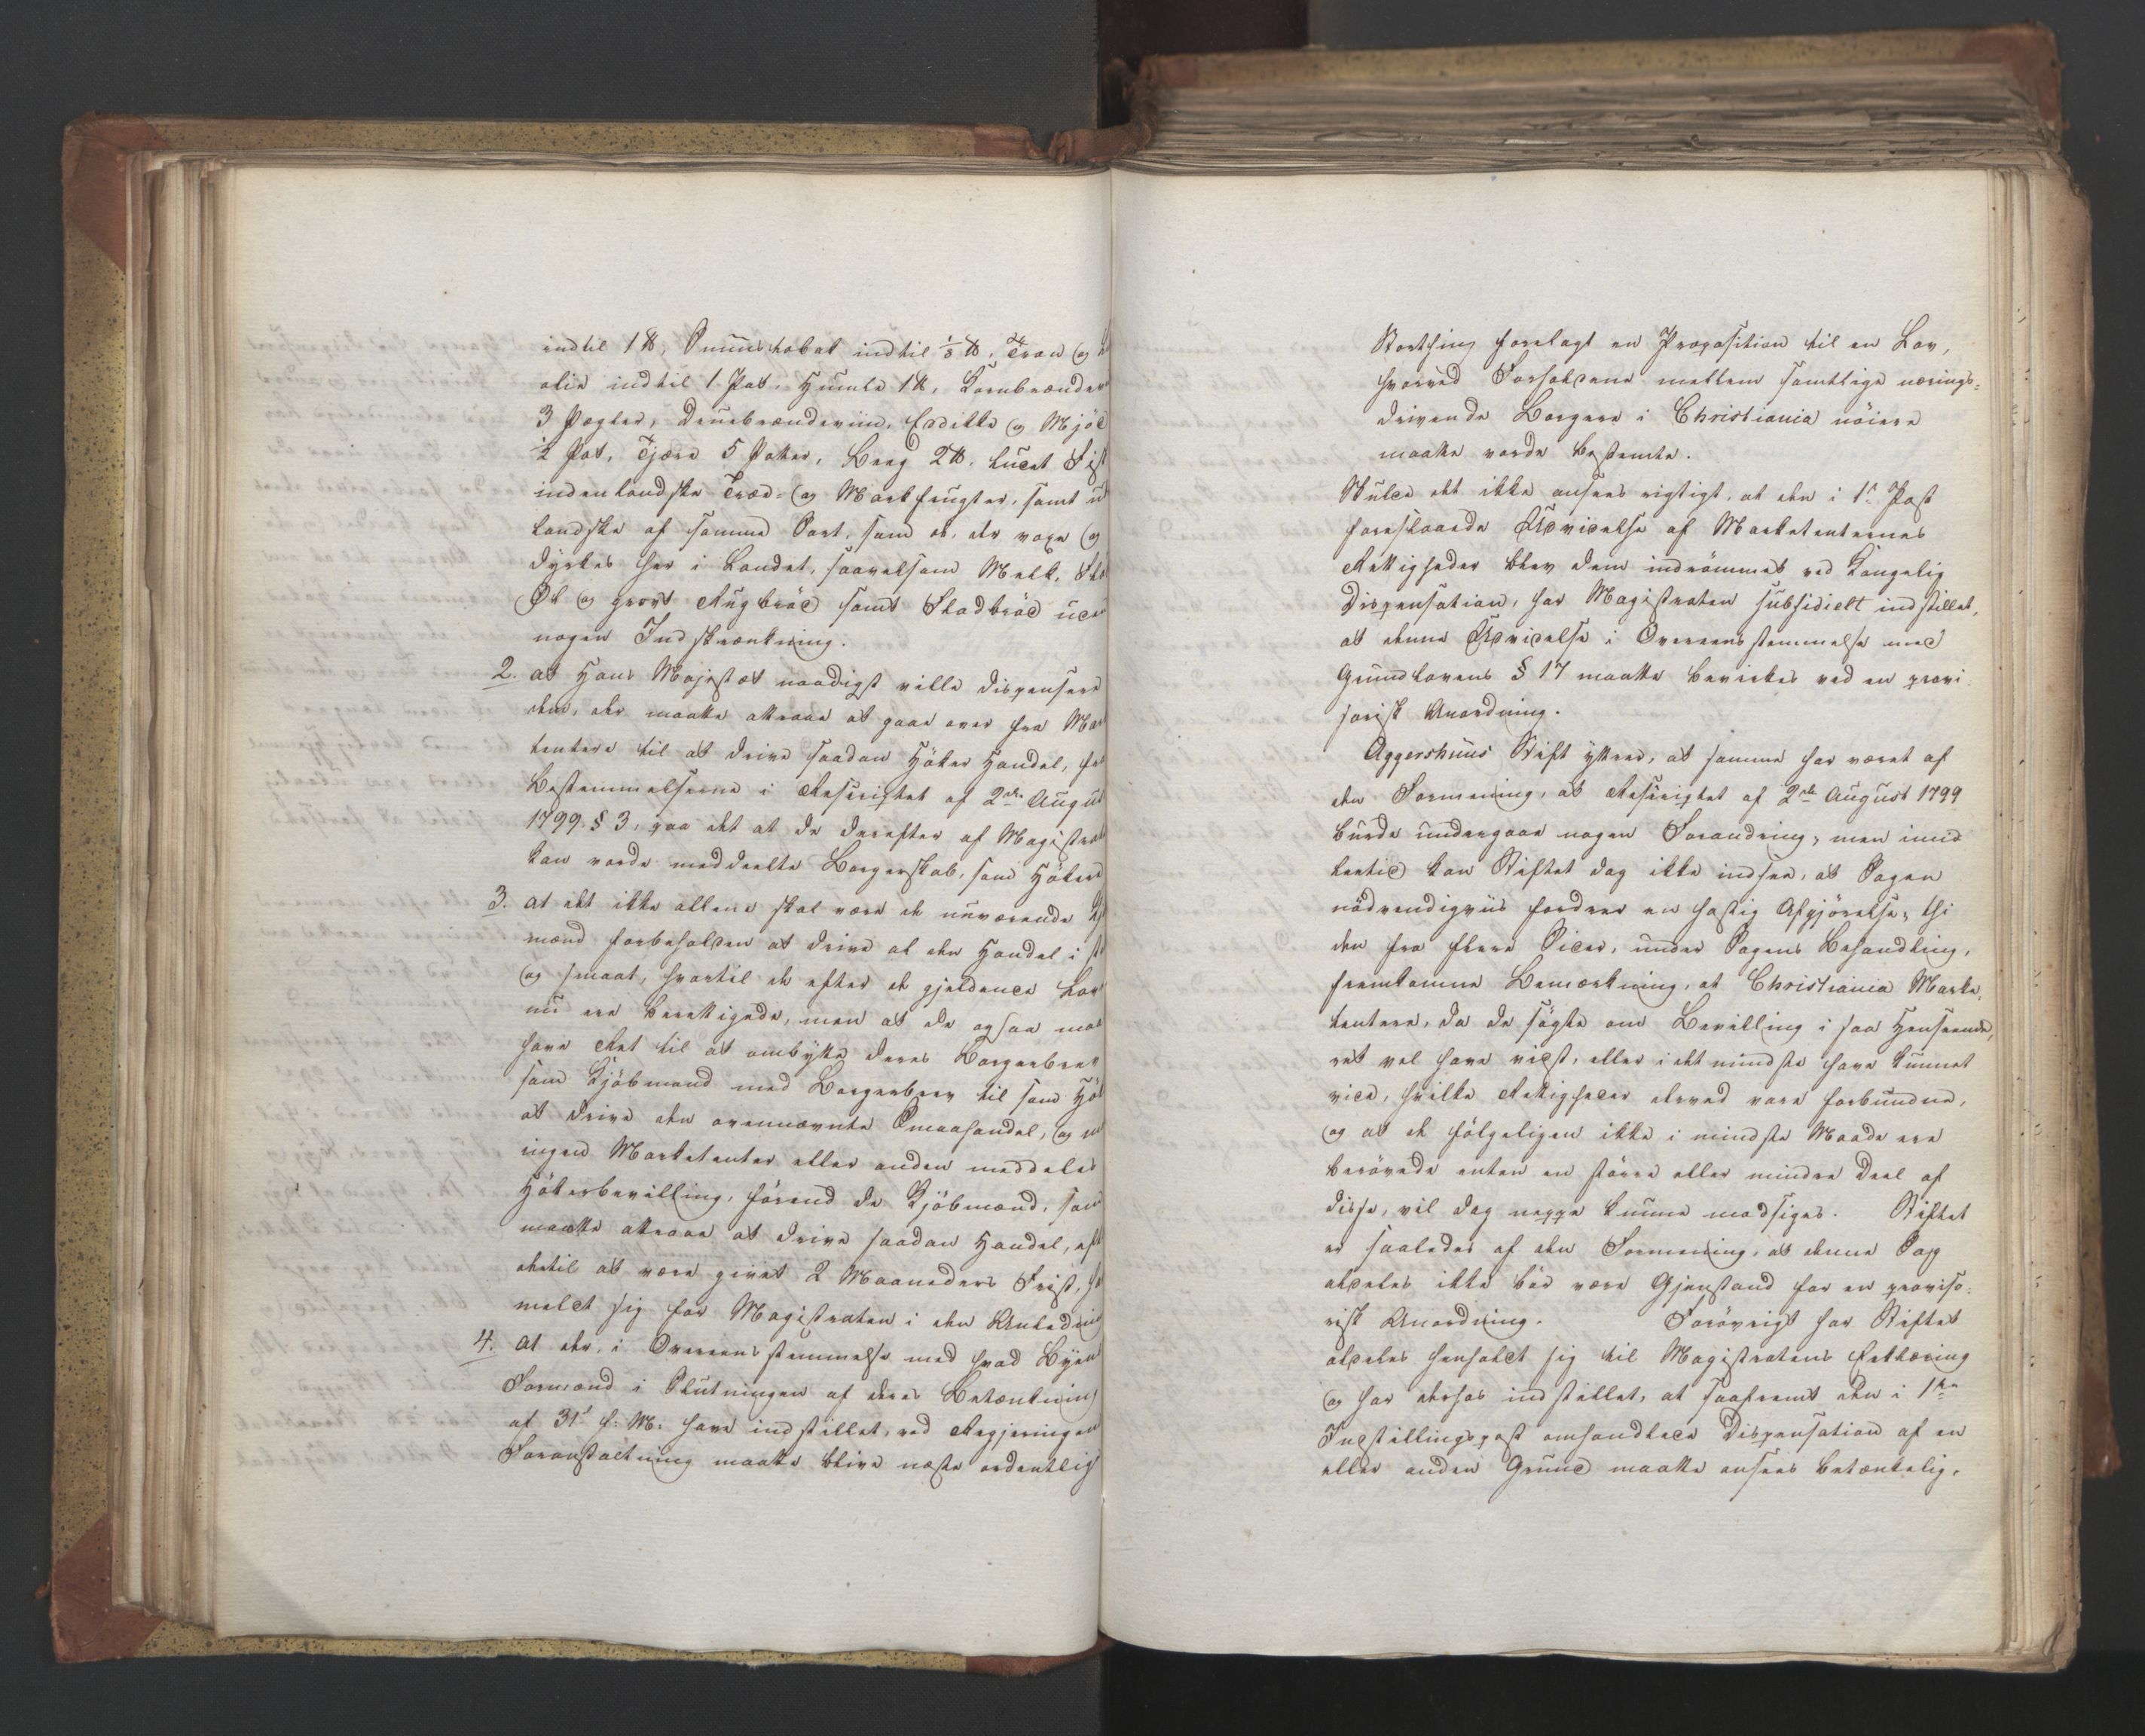 indtil 1 ℔, Snuustobak indtil ⅛ ℔, Tran og
olie indtil 1 Pot, Humle 1 ℔, Kornbrænde
3 Pægler, Druebrændeviin, Eddikke og Mjød
½ Pot, Tjære 5 Potter, Beeg 2 ℔, ludet Fisk
indenlandske Træe- og Markfrugter, samt u
landske af samme Sort, som de, der voxe og
dyrkes her i Landet, saavelsom Melk,
Øl og grovt Rugbrød samt Fladbrød uden
nogen Indskrænkning.
2. at Hans Majestæt naadigst ville dispensere
dem, der maatte attraae at gaae over fra Mar
tentere til at drive saadan Høker Handel, fra
Bestemmelserne i Rescriptet af 2den August
1799 § 3, paa det at de derefter af Magistra
kan vorde meddeelte Borgerskab, som Høkere
3. at det ikke allene skal være de nuværende
mænd forbeholden at drive al den Handel i
og smaat, hvortil de efter de gjeldende Lov
nu ere berettigede, men at de ogsaa maa
have Ret til at ombytte deres Borgerbrev
som Kjøbmand med Borgerbrev til som Høk
at drive den ovennævnte Smaahandel, og
ingen Marketenter eller anden meddeles
Høkerbevilling, førend de Kjøbmænd, som
maatte attraae at drive saadan Handel, eft
dertil at være givet 2 Maaneders Frist,
meldt sig for Magistraten i den Anledning
4. at der, i Overeensstemmelse med hvad Byens
Formænd i Slutningen af deres Betænkning
af 31te f: M: have indstillet, ved Regjeringens
Foranstaltning maatte blive næste ordentlig
Storthing forelagt en Proposition til en Lov,
hvorved Forholdene mellem samtlige nærings-
drivende Borgere i Christiania nöiere
maatte vorde bestemte.
Skulde det ikke ansees rigtigt, at den i 1ste Post
foreslaaede Udvidelse af Marketenternes
Rettigheder blev dem indrömmet ved Kongelig
Dispensation, har Magistraten subsidielt indstillet,
at denne Udvidelse i Overeensstemmelse med
Grundlovens § 17 maatte bevirkes ved en provi-
sorisk Anordning.
Aggershuus Stift yttrer, at samme har været af
den Formening, at Rescriptet af 2den August 1799
burde undergaae nogen Forandring; men imid-
lertid kan Stiftet dog ikke indsee, at Sagen
nödvendigviis fordrer en hastig Afgjörelse; thi
den fra flere Sider, under Sagens Behandling,
fremkomne Bemærkning, at Christiania Marke-
tentere, da de sögte om Bevilling i saa Henseende,
ret vel have vidst, eller i det mindste have kunnet
vide, hvilke Rettigheder derved vare forbundne,
og at de fölgeligen ikke i mindste Maade ere
berövede enten en större eller mindre Deel af
disse, vil dog neppe kunne modsiges. Stiftet
er saaledes af den Formening, at denne Sag
aldeles ikke bör være Gjenstand for en proviso-
risk Anordning. Forövrigt har Stiftet
aldeles henholdt sig til Magistratens Erklæring
og har derhos indstillet, at saafremt den i 1ste
Indstillingspost omhandlede Dispensation af en
eller anden Grund maatte ansees betænkelig,